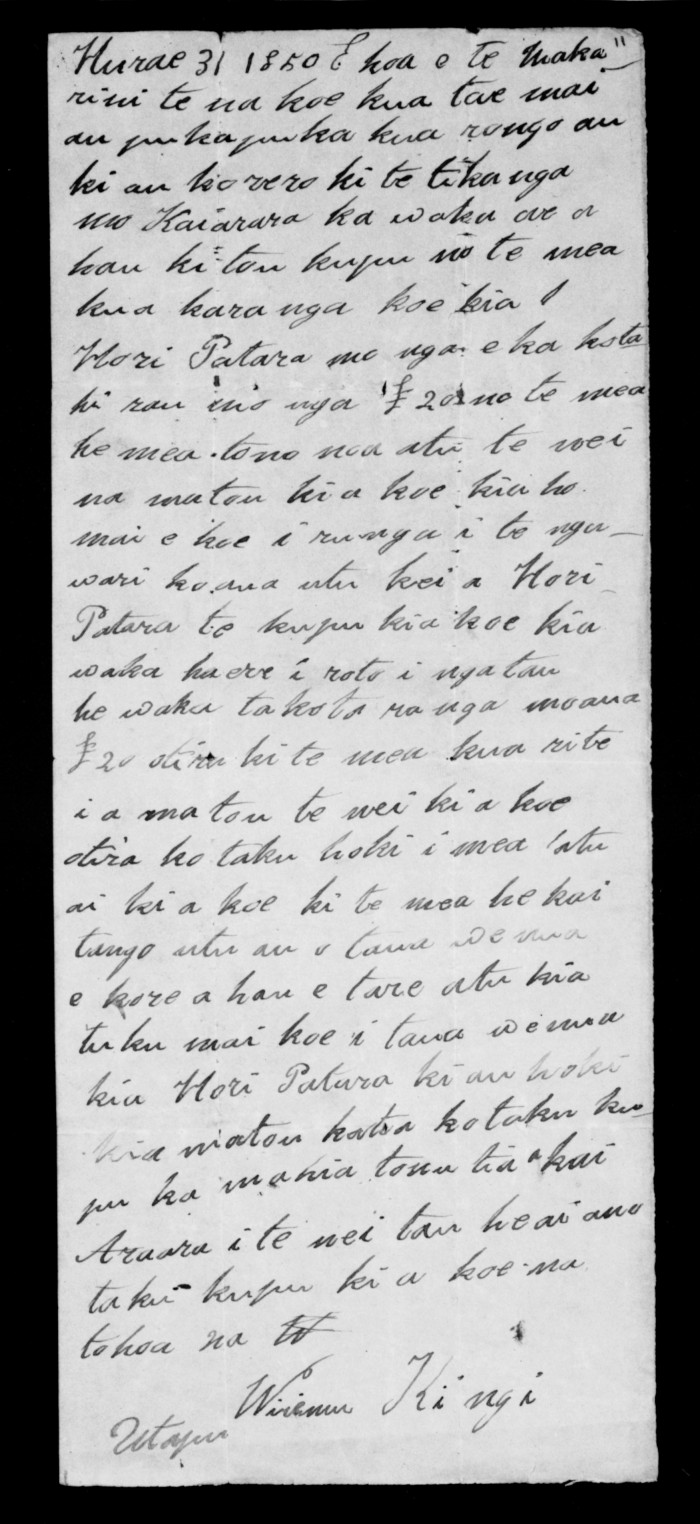 Hurae 31 1850 E hoa e te Maka"
rini te na koe kua tae mai
au pukapuka kua rongo au
ki au korero ki te tikanga
mo Kaiarara ka waka ae a
hau ki tou kupu no te mea
kua karanga koe kia
Hori Patara mo nga eka kota
hi rau mo nga £20 no te mea
he mea tono noa atu te nei
na matou ki a koe kia ho
mai e koe i runga i te nga-
wari ko ana utu kei a Hori
Patara te kupu kia koe kia
waka haere i roto i nga tau
he waka takoto ranga moana
£20 otira ki te mea kua rite
i a matou te nei ki a koe
otira ko taku hoki i mea atu
ai ki a koe ki te mea he kai
tango utu au o taua wenua
e kore a hau e tare atu kia
tuku mai koe i taua wenua
kia Hori Patara ki au hoki
kia matou katoa ko taku ku-
pu ka mahia tonu tia kai
Araara i te nei tau he ai ano
taku kupu ki a koe na
to hoa na W
Wiremu Kingi
Utapu